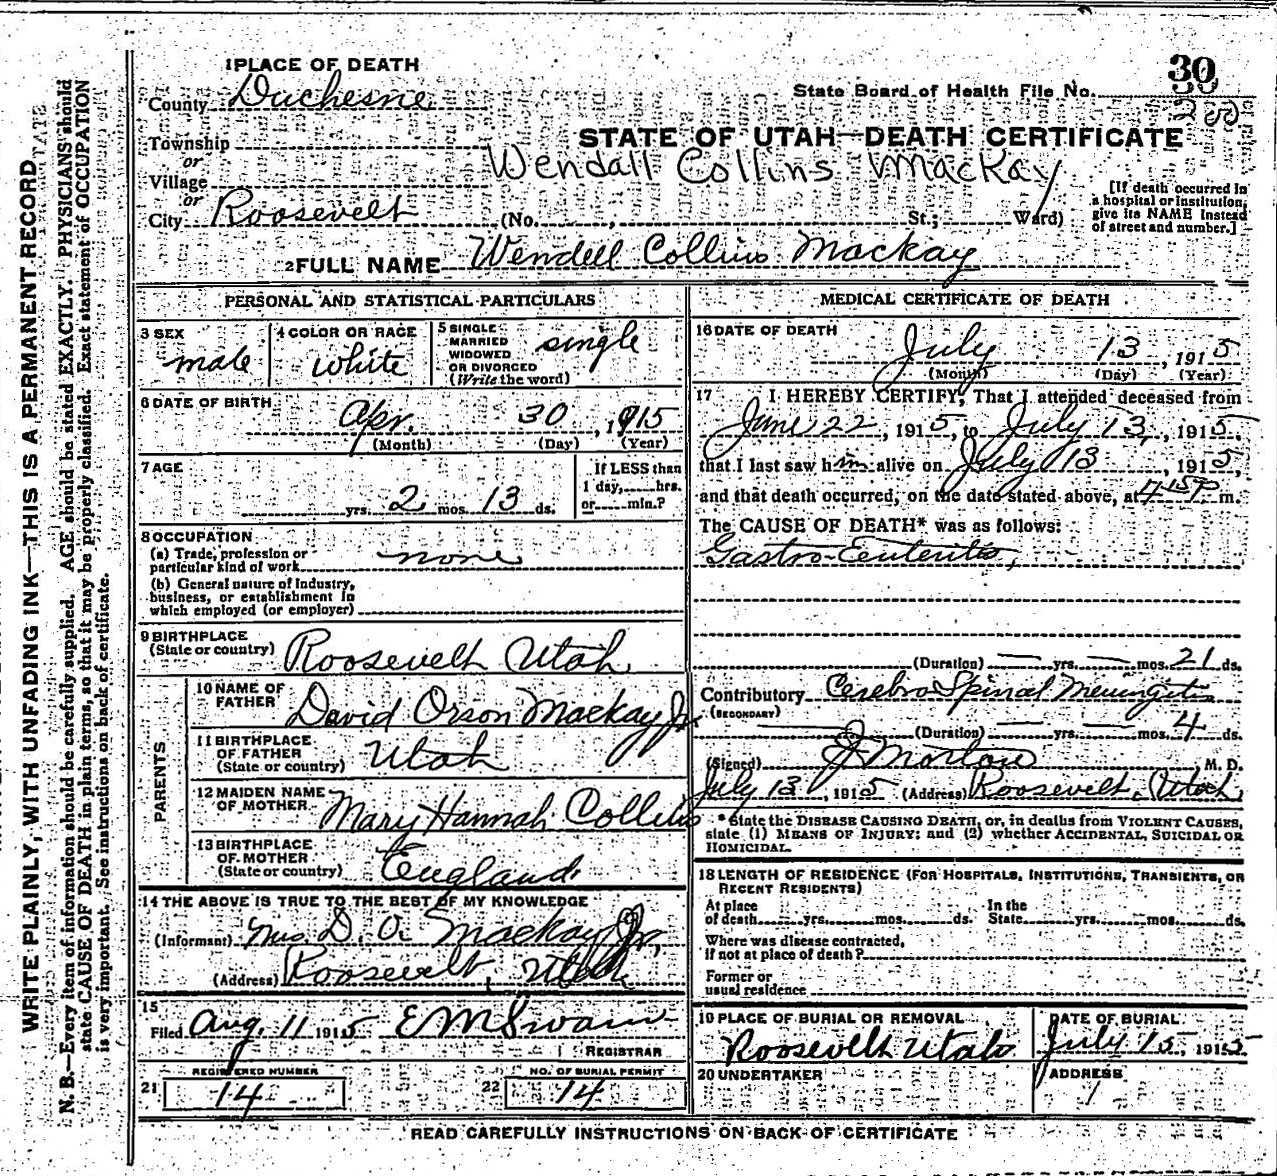 1 PLACE OF DEATH
County Duchesne
State Board of Health File No. 30
200
Township
or
Village
or
City Roosevelt (No. , St.; Ward)
STATE OF UTAH—DEATH CERTIFICATE
Wendall Collins Mackay
[If death occurred in
a hospital or institution,
give its NAME instead
of street and number.]
2 FULL NAME Wendell Collins Mackay
PERSONAL AND STATISTICAL PARTICULARS
3 SEX male
4 COLOR OR RACE white
5 SINGLE
MARRIED
WIDOWED
OR DIVORCED
(Write the word) single
6 DATE OF BIRTH
Apr. 30, 1915
(Month) (Day) (Year)
7 AGE
yrs. 2 mos. 13 ds.
If LESS than
1 day, hrs.
or min.?
8 OCCUPATION
(a) Trade, profession or
particular kind of work none
(b) General nature of industry,
business, or establishment in
which employed (or employer)
9 BIRTHPLACE
(State or country) Roosevelt Utah
PARENTS
10 NAME OF
FATHER David Orson Mackay Jr.
11 BIRTHPLACE
OF FATHER
(State or country) Utah
12 MAIDEN NAME
OF MOTHER Mary Hannah Collins
13 BIRTHPLACE
OF MOTHER
(State or country) England.
14 THE ABOVE IS TRUE TO THE BEST OF MY KNOWLEDGE
(Informant) Mrs D. O. Mackay Jr,
(Address) Roosevelt, Utah
15
Filed Aug. 11 1915 E M Swain
REGISTRAR
REGISTERED NUMBER
21 14
NO. OF BURIAL PERMIT
22 14
MEDICAL CERTIFICATE OF DEATH
16 DATE OF DEATH
July 13, 1915
(Month) (Day) (Year)
17 I HEREBY CERTIFY, That I attended deceased from
June 22, 1915, to July 13, 1915,
that I last saw him alive on July 13, 1915,
and that death occurred, on the date stated above, at P m.
The CAUSE OF DEATH* was as follows:
Gastro-Enteritis,
(Duration) — yrs. — mos. 21 ds.
Contributory Cerebro Spinal Meningitis
(SECONDARY)
(Duration) — yrs. — mos. 4 ds.
(Signed) J Morton, M. D.
July 13, 1915 (Address) Roosevelt, Utah,
* State the DISEASE CAUSING DEATH, or, in deaths from VIOLENT CAUSES,
state (1) MEANS OF INJURY; and (2) whether ACCIDENTAL, SUICIDAL OR
HOMICIDAL.
18 LENGTH OF RESIDENCE (FOR HOSPITALS, INSTITUTIONS, TRANSIENTS, OR
RECENT RESIDENTS)
At place
of death yrs. mos. ds.
In the
State yrs. mos. ds.
Where was disease contracted,
if not at place of death?
Former or
usual residence
19 PLACE OF BURIAL OR REMOVAL
Roosevelt Utah
DATE OF BURIAL
July 15, 1915
20 UNDERTAKER
ADDRESS
READ CAREFULLY INSTRUCTIONS ON BACK OF CERTIFICATE
WRITE PLAINLY, WITH UNFADING INK—THIS IS A PERMANENT RECORD
N. B.—Every item of information should be carefully supplied. AGE should be stated EXACTLY. PHYSICIANS should
state CAUSE OF DEATH in plain terms, so that it may be properly classified. Exact statement of OCCUPATION
is very important. See instructions on back of certificate.